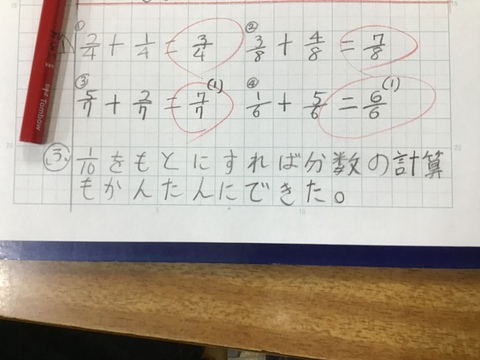 ① 2/4 + 1/4 = 3/4 ② 3/8 + 4/8 = 7/8
③ 5/7 + 2/7 = 7/7 (1) ④ 1/6 + 5/6 = 6/6 (1)
ふ 1/10をもとにすれば分数の計算
もかんたんにできた。
Tombow